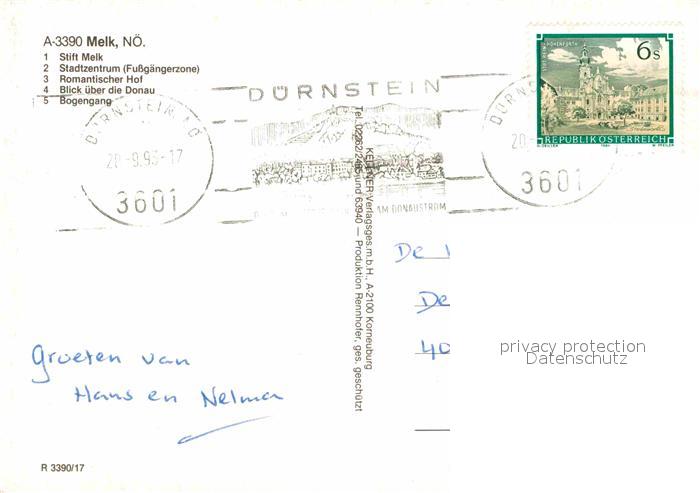 A-3390 Melk, NÖ.
1 Stift Melk
2 Stadtzentrum (Fußgängerzone)
3 Romantischer Hof
4 Blick über die Donau
5 Bogengang
DÜRNSTEIN, NÖ
20.-9.93-17
3601
DÜRNSTEIN
AM DONAUSTROM
DÜRNS
20.-
3601
6s
STIFT REIN-HOHENFURTH
REPUBLIK ÖSTERREICH
KELLNER Verlagsges.m.b.H., A-2100 Korneuburg
Tel. 02262/2485 und 63940 — Produktion Rennhofer, ges. geschützt
De
De
40
privacy protection
Datenschutz
Groeten van
Hans en Nelma
R 3390/17